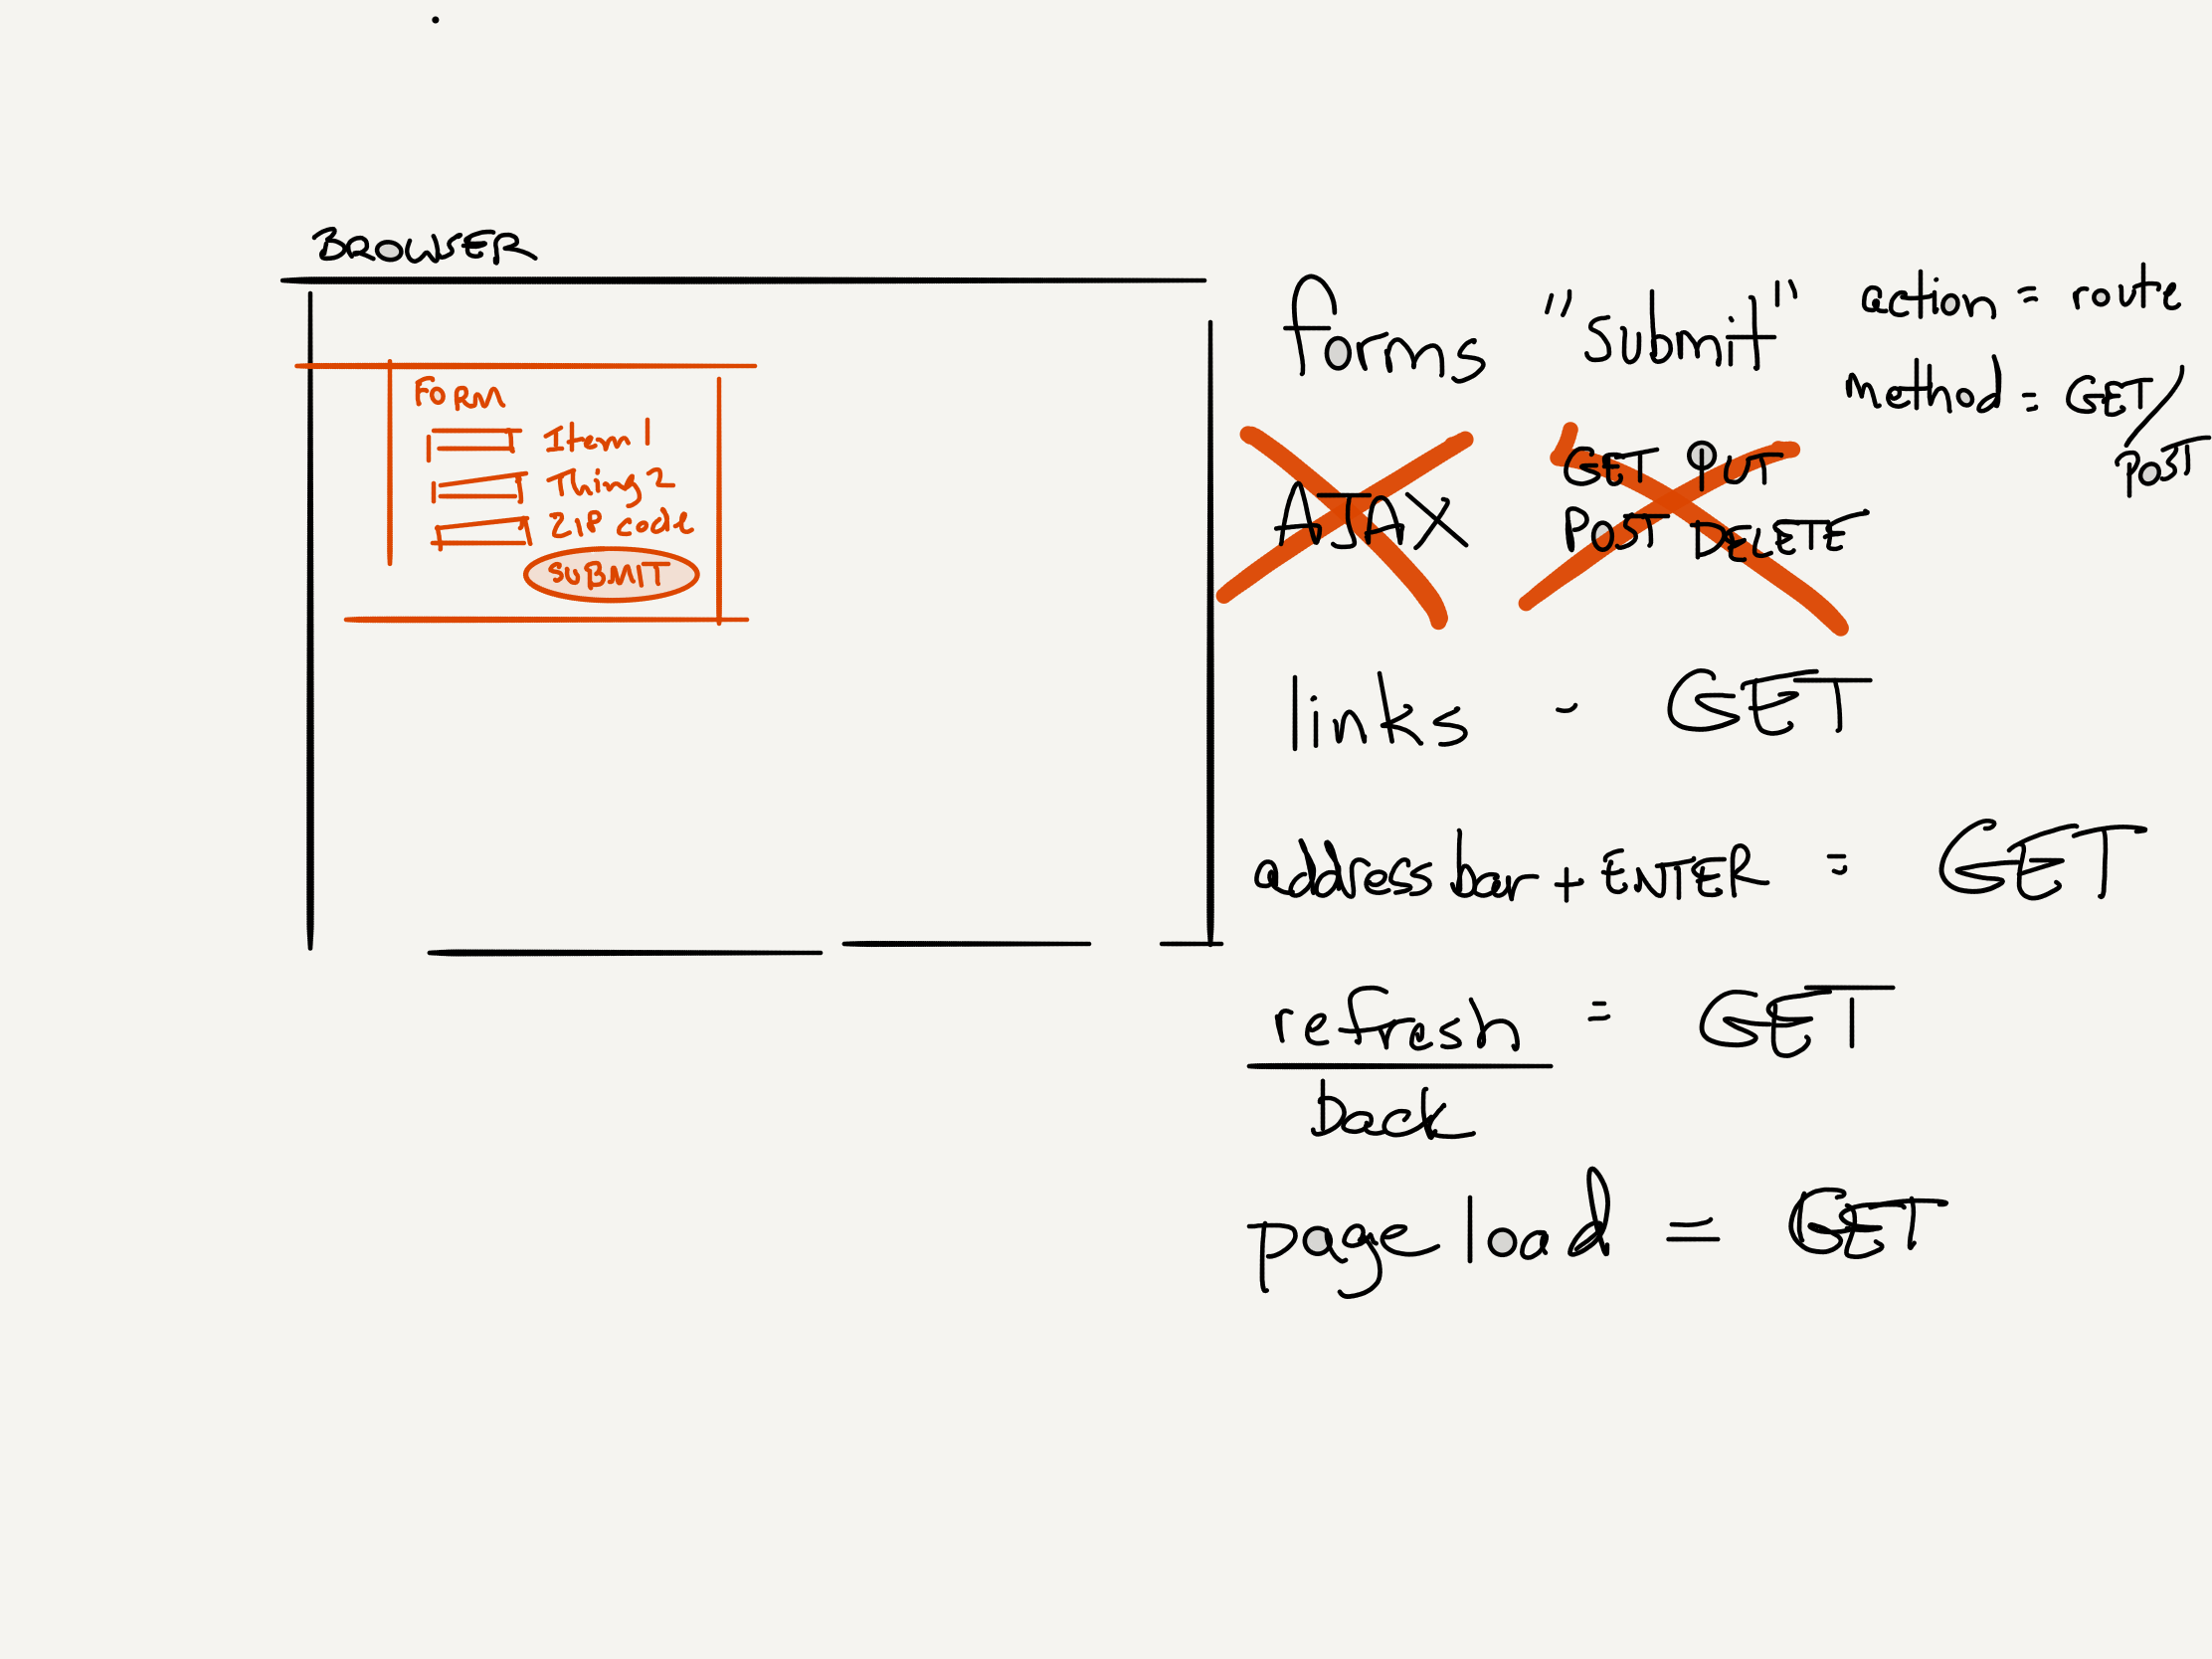 BROWSER
FORM
Item 1
Thing 2
ZIP code
SUBMIT
forms "Submit" action = route
method = GET/
POST
AJAX GET PUT
POST DELETE
links - GET
address bar + ENTER = GET
refresh = GET
back
page load = GET